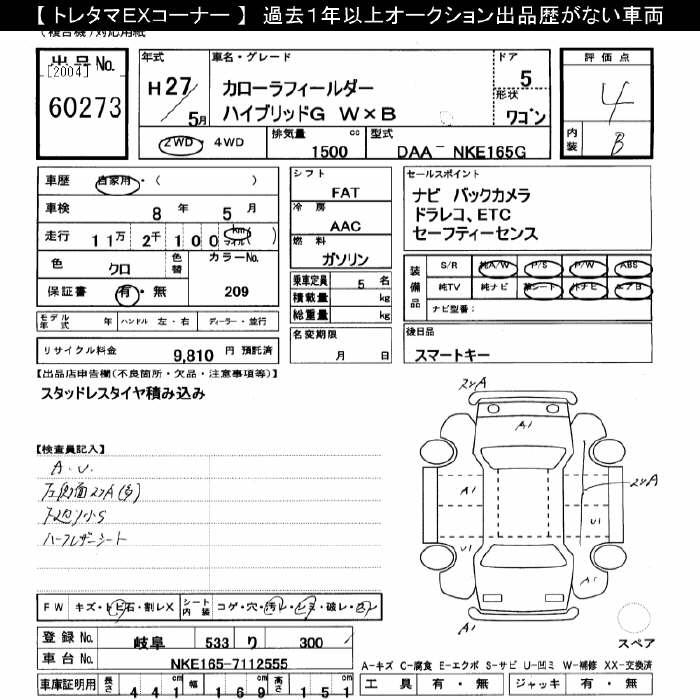 【 トレタマEXコーナー 】 過去1年以上オークション出品歴がない車両
出品No.
[2004]
60273
年式
H27/5月
車名・グレード
カローラフィールダー
ハイブリッドG W×B
ドア
5
形状
ワゴン
評価点
4
内装
B
2WD・4WD
排気量 cc
1500
型式
DAA NKE165G
車歴 自家用・( )
車検 8 年 5 月
走行 11万 2千 100 km マイル ( )
色 クロ 色替
カラーNo.
209
保証書 有・無
モデル年式 年 ハンドル 左・右 ディーラー・並行
リサイクル料金 9,810 円 預託済
シフト
FAT
冷房
AAC
燃料
ガソリン
乗車定員 5 名
積載量 kg
総重量 kg
名変期限
月 日
セールスポイント
ナビ バックカメラ
ドラレコ、ETC
セーフティーセンス
装備品
S/R 純A/W P/S P/W ABS
純TV 純ナビ 革シート 外ナビ エアB
ナビ型番:
後日品
スマートキー
【出品店申告欄(不良箇所・欠品・注意事項等)】
スタッドレスタイヤ積み込み
【検査員記入】
A.U.
ハーフレザーシート
A1
A1
U1
U1
A1
FW キズ・トビ石・割レX シート内装 コゲ・穴・汚レ・シミ・破レ・
登録No. 岐阜 533 り 300
車台No. NKE165-7112555
車庫証明用 長さ 441 cm 幅 169 cm 高さ 151 cm
スペア
A-キズ C-腐食 E-エクボ S-サビ U-凹ミ W-補修 XX-交換済
工具 有・無 ジャッキ 有・無